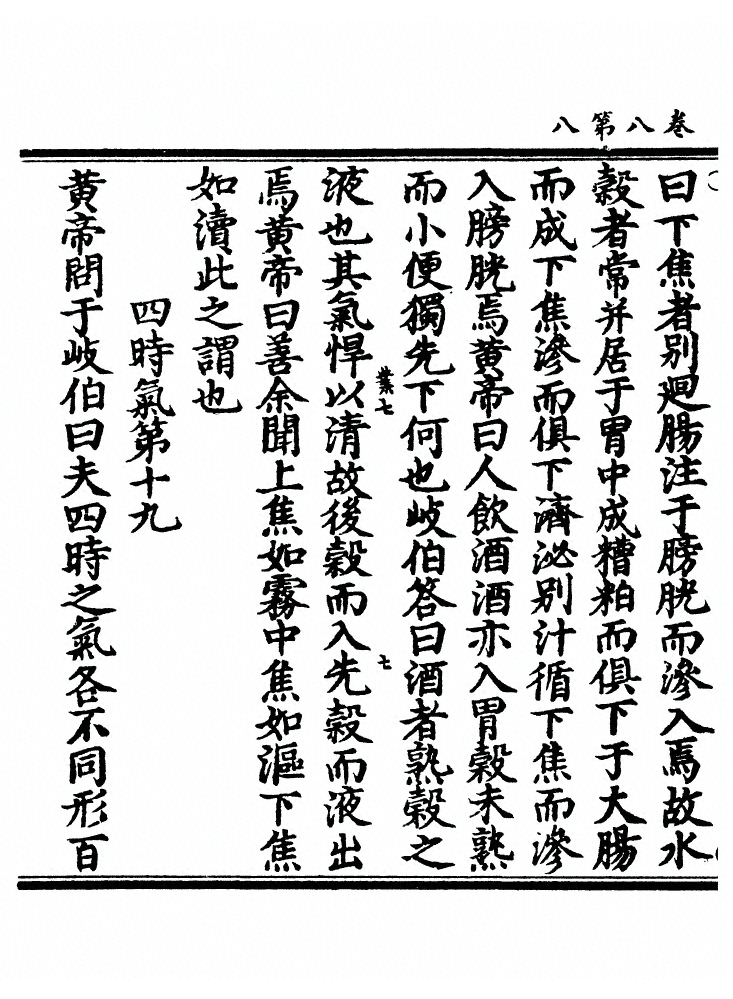 卷八第八
曰下焦者別廻腸注于膀胱而滲入焉故水
穀者常并居于胃中成糟粕而俱下于大腸
而成下焦滲而俱下濟泌別汁循下焦而滲
入膀胱焉黄帝曰人飲酒酒亦入胃穀未熟
而小便獨先下何也岐伯答曰酒者熟穀之
液也其氣悍以清故後穀而入先穀而液出
焉黄帝曰善余聞上焦如霧中焦如漚下焦
如瀆此之謂也
四時氣第十九
黄帝問于岐伯曰夫四時之氣各不同形百
業七
七